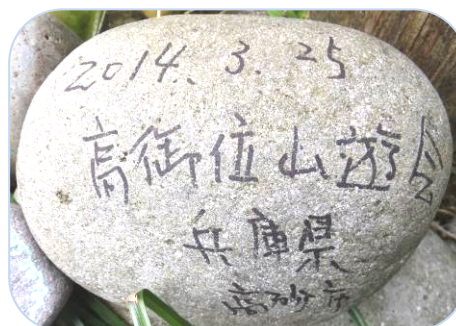 2014. 3. 25
高御位山遊会
兵庫県
高砂市